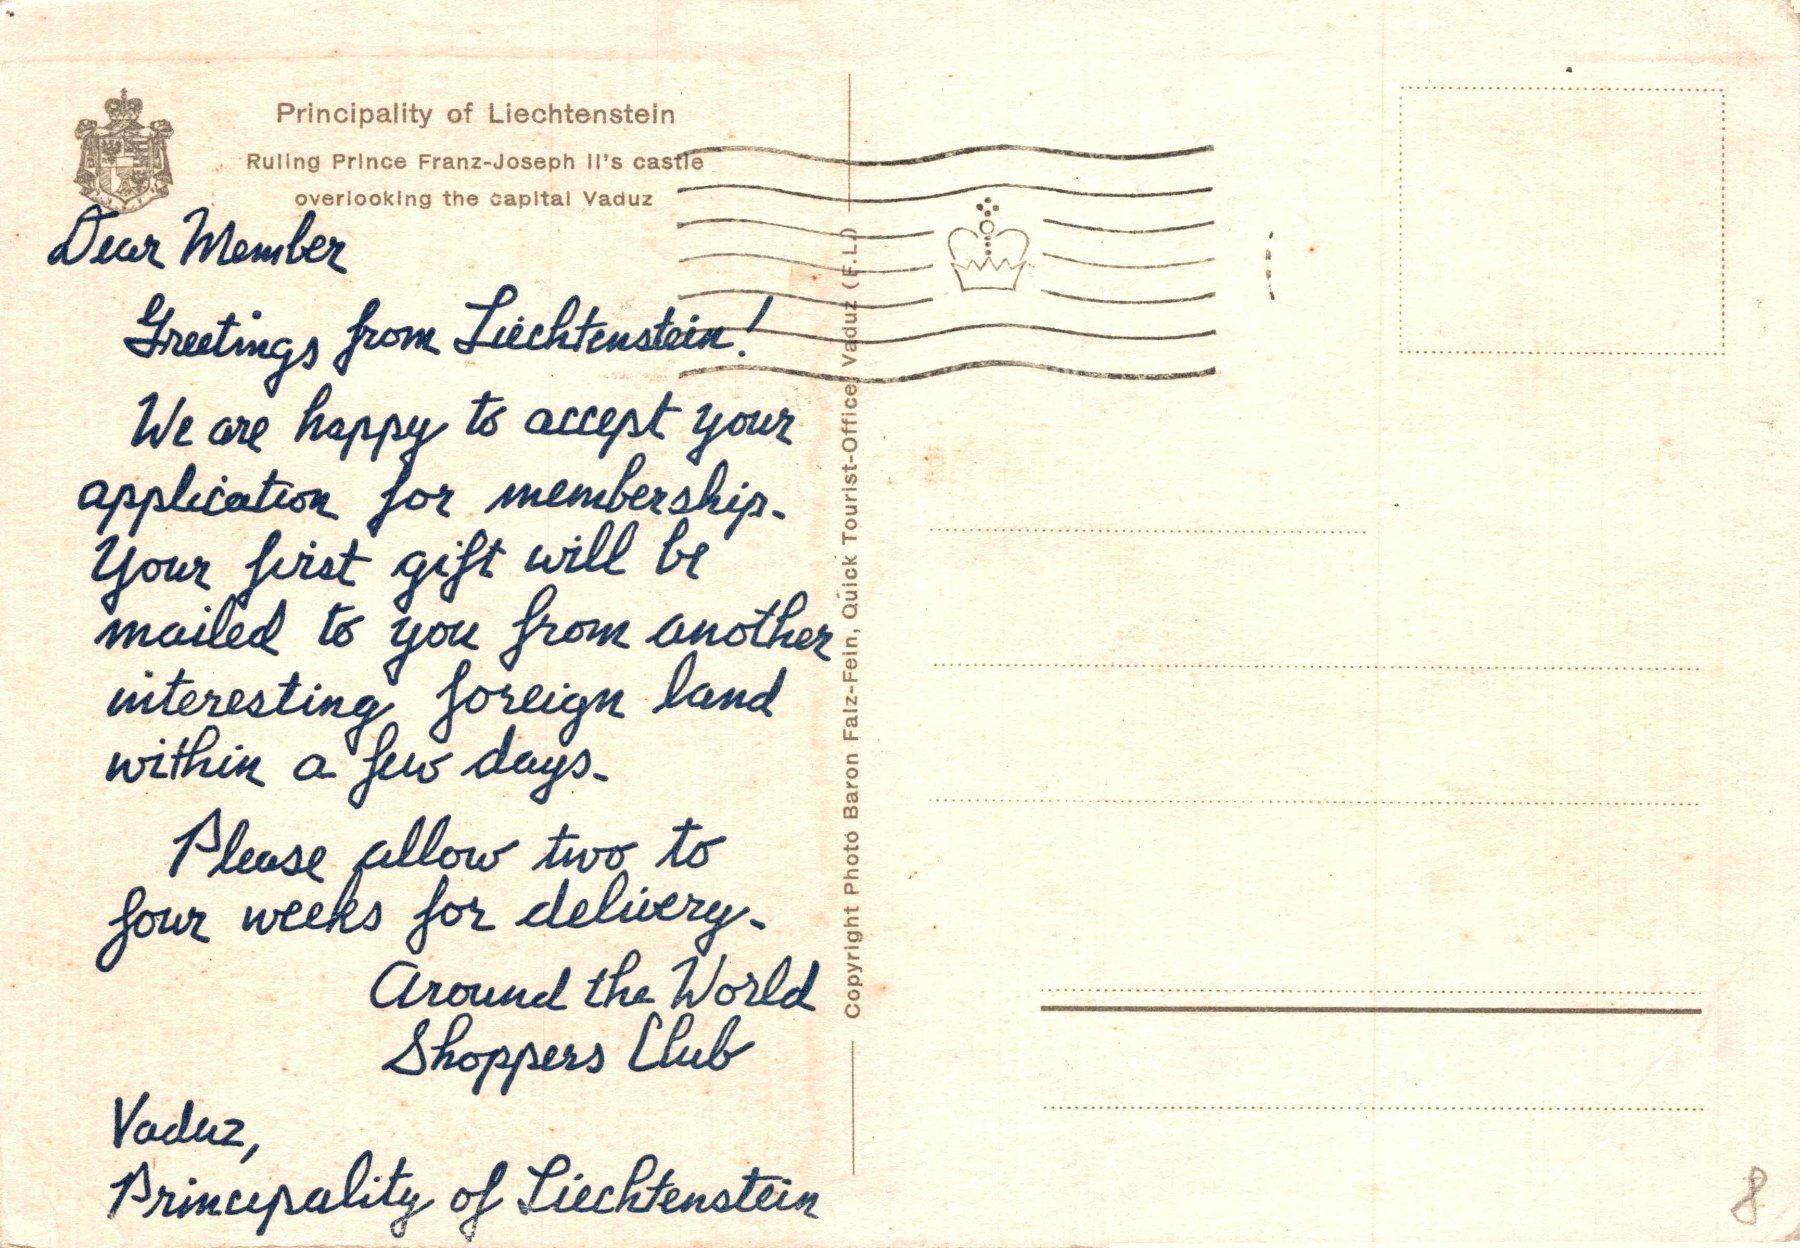 Principality of Liechtenstein
Ruling Prince Franz-Joseph II's castle
overlooking the capital Vaduz
Dear Member
Greetings from Liechtenstein!
We are happy to accept your
application for membership.
Your first gift will be
mailed to you from another
interesting foreign land
within a few days.
Please allow two to
four weeks for delivery.
Around the World
Shoppers Club
Vaduz,
Principality of Liechtenstein
Copyright Photo Baron Falz-Fein, Quick Tourist-Office Vaduz (F.L.)
8